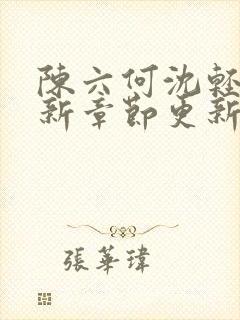 陳六何沈輕
新章節更新
張華瑋